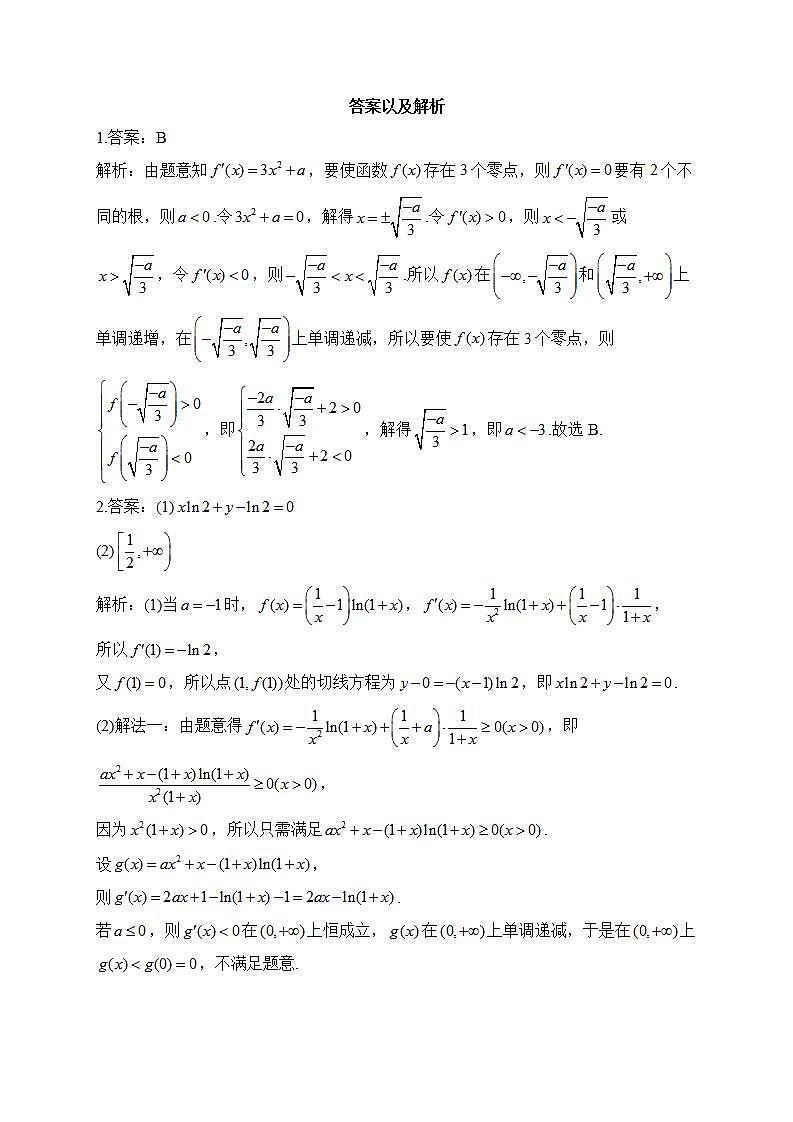 答案以及解析
1.答案：B
解析：由题意知 f′(x)=3x²+a，要使函数 f(x) 存在 3 个零点，则 f′(x)=0 要有 2 个不
同的根，则 a<0 .令 3x²+a=0，解得 x=±√(-a/3) .令 f′(x)>0，则 x<-√(-a/3) 或
x>√(-a/3)，令 f′(x)<0，则 -√(-a/3)<x<√(-a/3) .所以 f(x) 在 (-∞,-√(-a/3)) 和 (√(-a/3),+∞) 上
单调递增，在 (-√(-a/3),√(-a/3)) 上单调递减，所以要使 f(x) 存在 3 个零点，则
{f(-√(-a/3))>0, f(√(-a/3))<0，即 {-2a/3·√(-a/3)+2>0, 2a/3·√(-a/3)+2<0，解得 √(-a/3)>1，即 a<-3 .故选 B.
2.答案：(1) xln2+y-ln2=0
(2) [1/2,+∞)
解析：(1)当 a=-1 时，f(x)=(1/x-1)ln(1+x)，f′(x)=-1/x² ln(1+x)+(1/x-1)·1/(1+x)，
所以 f′(1)=-ln2，
又 f(1)=0，所以点 (1,f(1)) 处的切线方程为 y-0=-(x-1)ln2，即 xln2+y-ln2=0 .
(2)解法一：由题意得 f′(x)=-1/x² ln(1+x)+(1/x+a)·1/(1+x)≥0(x>0)，即
(ax²+x-(1+x)ln(1+x))/(x²(1+x))≥0(x>0)，
因为 x²(1+x)>0，所以只需满足 ax²+x-(1+x)ln(1+x)≥0(x>0) .
设 g(x)=ax²+x-(1+x)ln(1+x)，
则 g′(x)=2ax+1-ln(1+x)-1=2ax-ln(1+x) .
若 a≤0，则 g′(x)<0 在 (0,+∞) 上恒成立，g(x) 在 (0,+∞) 上单调递减，于是在 (0,+∞) 上
g(x)<g(0)=0，不满足题意.